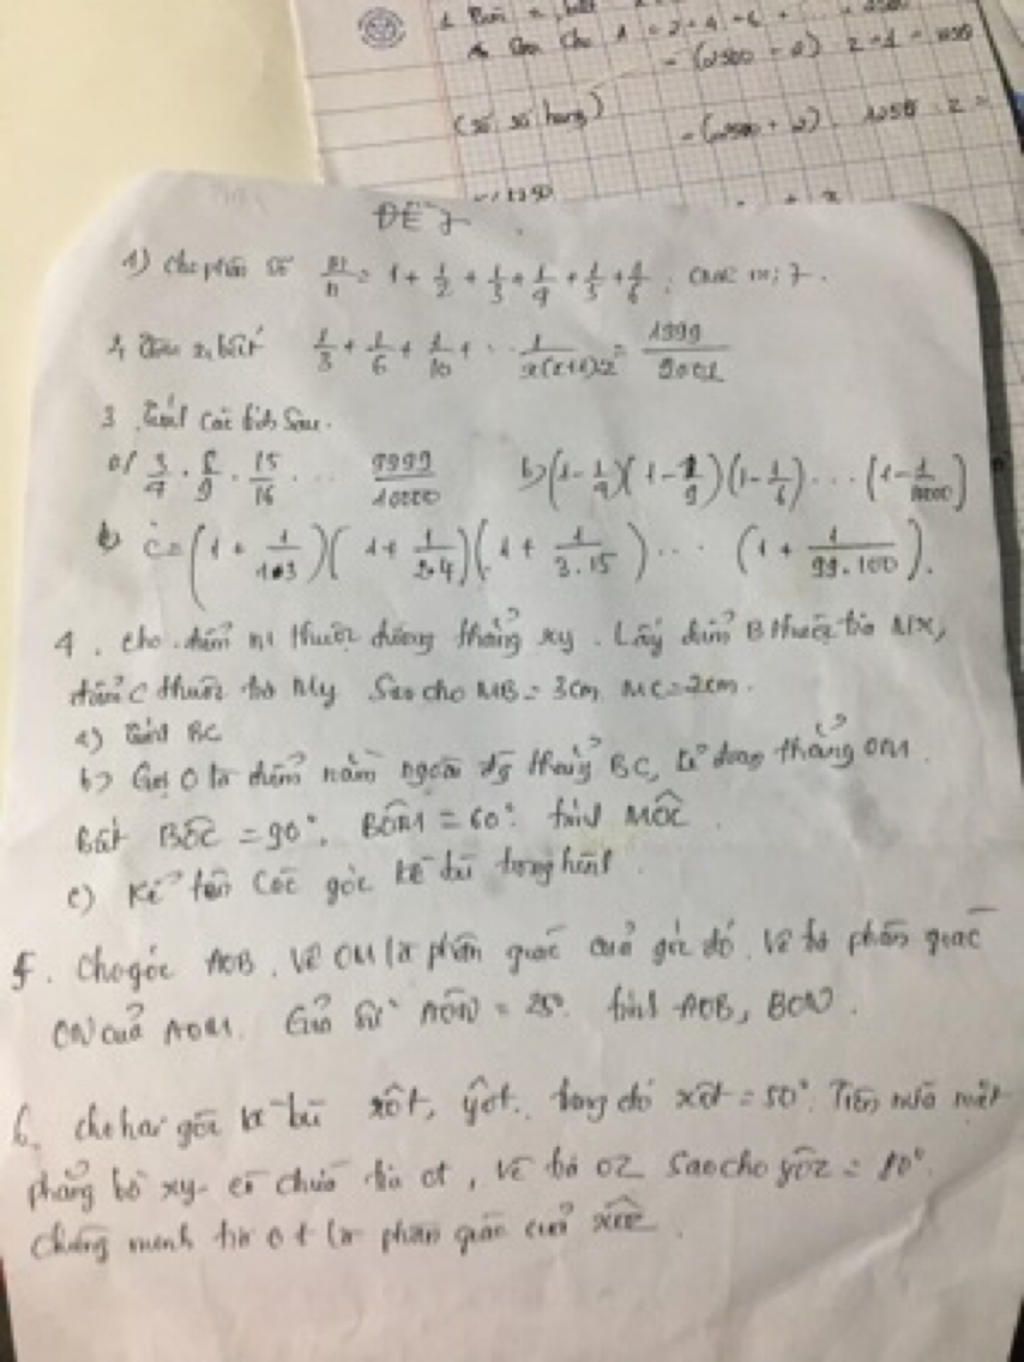 1 + 2 = 2 + 4 + 6 +
- (2500 - 2) : 2 + 1 = 1250
(số số hạng)
- (2500 + 2) . 1250 : 2 =
ĐỀ 7
1) Cho phân số m/n = 1 + 1/2 + 1/3 + 1/4 + 1/5 + 1/6 . CMR m ⋮ 7 .
2, Tìm x, biết 1/3 + 1/6 + 1/10 + .. 1/x(x+1):2 = 1999/2001
3 . Tính các tích sau .
a/ 3/4 . 8/9 . 15/16 ... 9999/10000 b) (1 - 1/4)(1 - 1/9)(1 - 1/6) ... (1 - 1/10000)
c = (1 + 1/1.3)(1 + 1/2.4)(1 + 1/3.15) ... (1 + 1/99.100) .
4 . Cho điểm M thuộc đường thẳng xy . Lấy điểm B thuộc tia Mx,
điểm C thuộc tia My sao cho MB = 3cm, MC = 2cm .
a) Tính BC
b) Gọi O là điểm nằm ngoài đg thẳng BC, kẻ đoạn thẳng OM .
Biết BÔC = 90°, BÔM = 60° . tính MÔC .
c) Kể tên các góc kề bù trong hình .
5 . Cho góc AOB . Vẽ OM là phân giác của góc đó . Vẽ tia phân giác
ON của AOM . Giả sử AÔN = 25° . tính AOB, BON .
6, Cho hai góc kề bù xÔt, yÔt . trong đó xÔt = 50° . Trên nửa mặt
phẳng bờ xy có chứa tia Ot , vẽ tia OZ sao cho yÔz = 80° .
Chứng minh tia Ot là phân giác của xÔz .